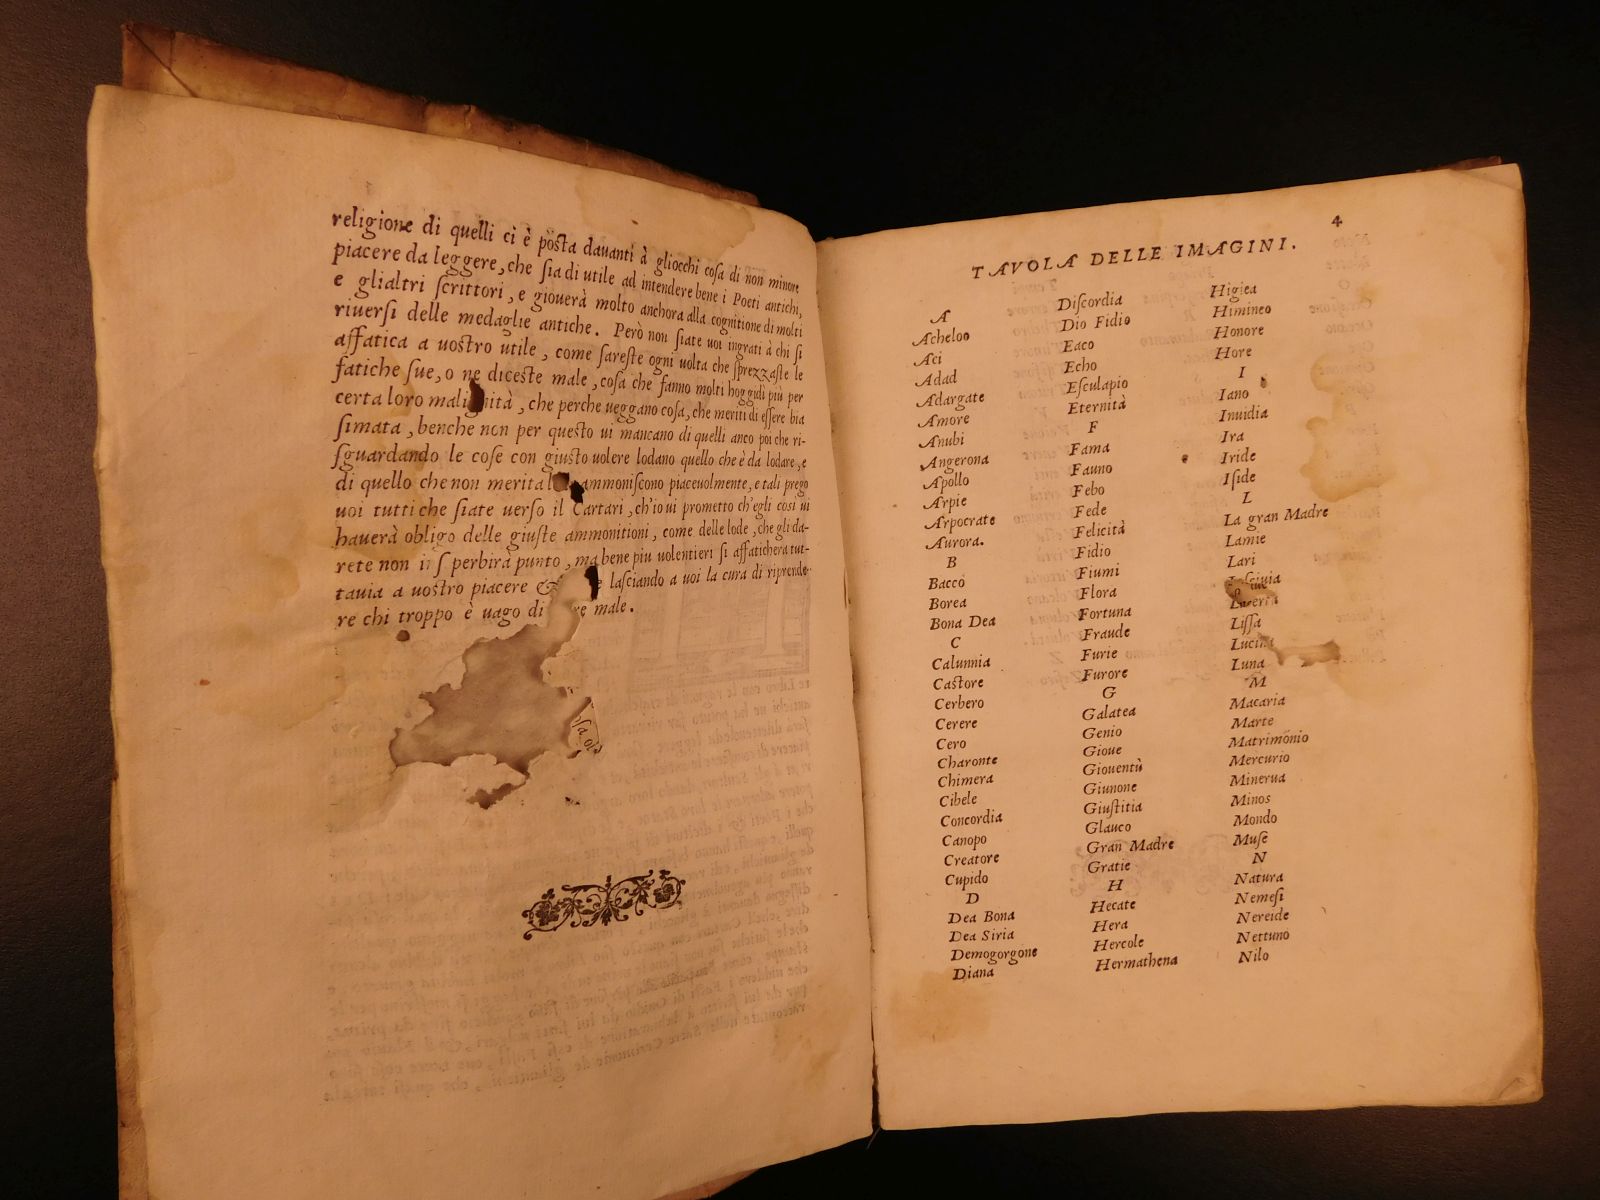 religione di quelli ci è posta davanti à gliocchi cosa di non minore
piacere da leggere, che sia di utile ad intendere bene i Poeti antichi,
e glialtri scrittori, e giouerà molto anchora alla cognitione di molti
riuersi delle medaglie antiche. Però non siate uoi ingrati à chi si
affatica a uostro utile, come sareste ogni uolta che sprezzaste le
fatiche sue, o ne diceste male, cosa che fanno molti hoggidi più per
certa loro malignità, che perche ueggano cosa, che meriti di essere bia
simata, benche non per questo ui mancano di quelli anco poi che ri-
sguardando le cose con giusto uolere lodano quello che è da lodare, e
di quello che non merita ammoniscono piaceuolmente, e tali prego
uoi tutti che siate uerso il Cartari, ch'io ui prometto ch'egli così ui
hauerà obligo delle giuste ammonitioni, come delle lode, che gli da-
rete non perbirà punto, ma bene piu uolentieri si affaticherà tut-
tauia a uostro piacere & lasciando a uoi la cura di riprende-
re chi troppo è uago di male.
4
TAVOLA DELLE IMAGINI.
A
Acheloo
Aci
Adad
Adargate
Amore
Anubi
Angerona
Apollo
Arpie
Arpocrate
Aurora.
B
Bacco
Borea
Bona Dea
C
Calunnia
Castore
Cerbero
Cerere
Cero
Charonte
Chimera
Cibele
Concordia
Canopo
Creatore
Cupido
D
Dea Bona
Dea Siria
Demogorgone
Diana
Discordia
Dio Fidio
Eaco
Echo
Esculapio
Eternità
F
Fama
Fauno
Febo
Fede
Felicità
Fidio
Fiumi
Flora
Fortuna
Fraude
Furie
Furore
G
Galatea
Genio
Gioue
Giouentù
Giunone
Giustitia
Glauco
Gran Madre
Gratie
H
Hecate
Hera
Hercole
Hermathena
Higiea
Himineo
Honore
Hore
I
Iano
Inuidia
Ira
Iride
Iside
L
La gran Madre
Lamie
Lari
Lissa
Lucina
Luna
M
Macaria
Marte
Matrimonio
Mercurio
Minerua
Minos
Mondo
Muse
N
Natura
Nemesi
Nereide
Nettuno
Nilo